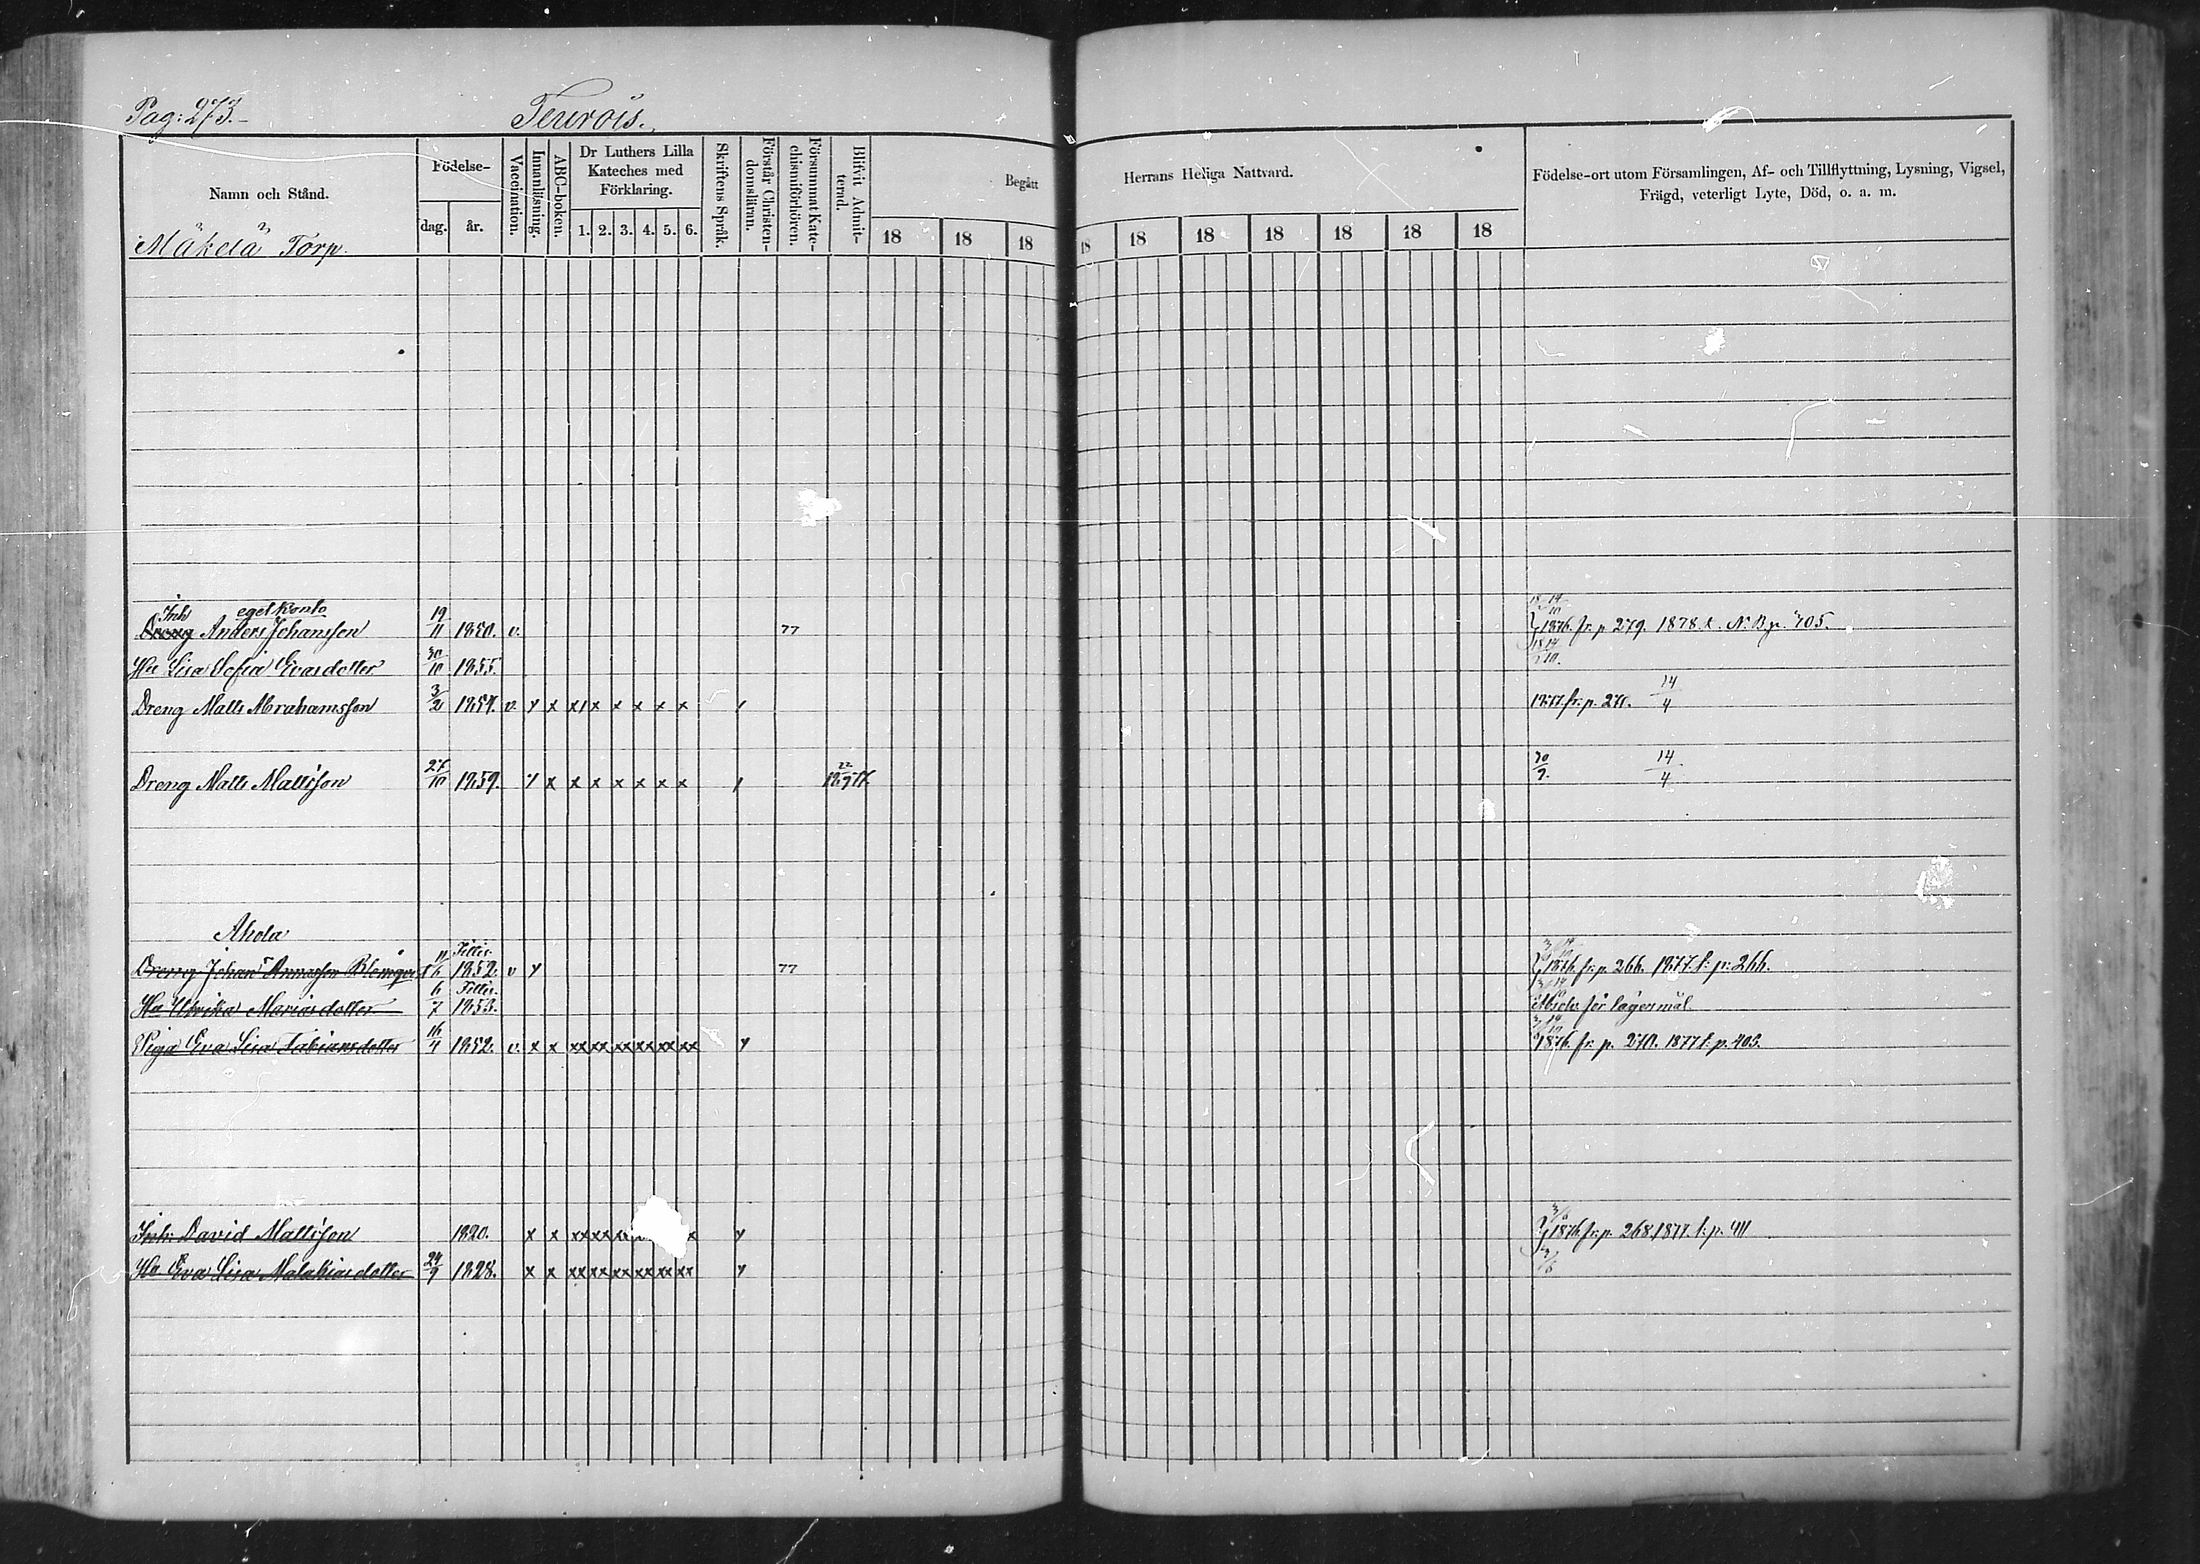 Pag: 273.
Teurois.
Namn och Stånd.
Mäkelä Torp.
Födelse-
dag.
år.
Vaccination.
Innanläsning.
ABC-boken.
Dr Luthers Lilla
Kateches med
Förklaring.
1. 2. 3. 4. 5. 6.
Skriftens Språk.
Förstår Christen-
domsläran.
Försummat Kate-
chismiförhören.
Blifvit Admit-
terad.
Begått
Herrans Heliga Nattvard.
18 18 18 18 18 18 18 18 18 18
Födelse-ort utom Församlingen, Af- och Tillflyttning, Lysning, Vigsel,
Frägd, veterligt Lyte, Död, o. a. m.
Inh eget konto
Dreng Anders Johansson 19/11 1850. v. 77 1876. fr. p 279. 1878. t. N. B. p. 705.
Hu Lisa Sofia Evasdotter 30/10 1855.
Dreng Matts Abrahamsson 3/2 1857. v. 1877. fr. p. 271. 14/4
Dreng Matts Mattsson 27/10 1859. x x x x x x x 22/9 30/9. 14/4
Ahola
Dreng Johan Annasson 11/6 1852. v 77 1876. fr. p. 266. 1877. t. p. 266.
Hu Ulrika Mariasdotter 6/7 1853. för lägersmål.
Piga Eva Lisa Fabiansdotter 1852. v. x x xx xx xx xx xx xx 1876. fr. p. 270. 1877 t. p. 403.
Inh. David Mattsson 1820. x x xx xx 1876. fr. p. 268. 1877. t. p. 411
Hu Eva Lisa Malakiasdotter 24/9 1828. x x xx xx xx xx xx xx